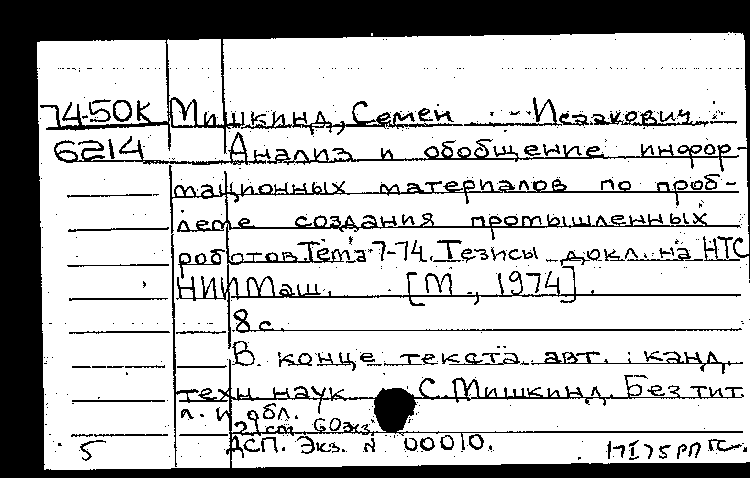 74-50К Мишкинд, Семен Исаакович
6214 Анализ и обобщение инфор-
мационных материалов по проб-
леме создания промышленных
роботов. Тема 7-74. Тезисы докл. на НТС
НИИМаш. [М., 1974].
8 с.
В конце текста авт.: канд.
техн. наук С. Мишкинд. Без тит.
л. и обл.
21 см. 60 экз.
5 ДСП. Экз. N 00010.